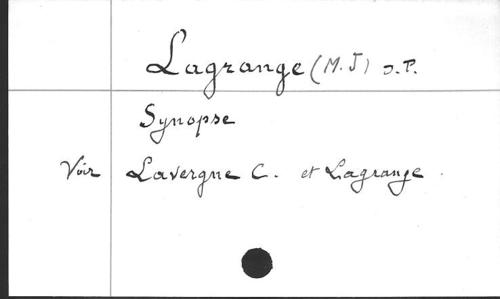 Lagrange (M. J) O.P.
Synopse
Voir Lavergne C. et Lagrange.